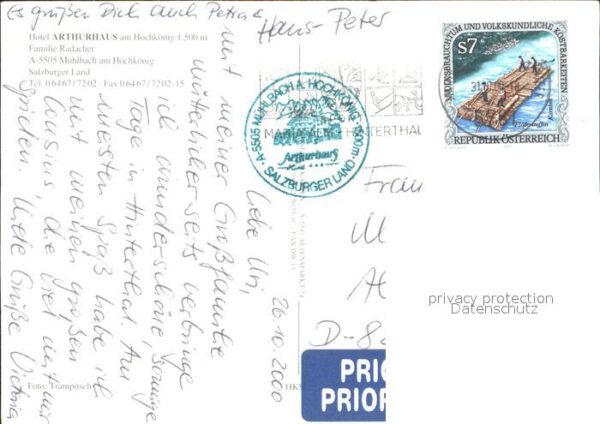 Es grüßen Dich auch Petra &
Hans-Peter
Hotel ARTHURHAUS am Hochkönig 1.500 m
Familie Radacher
A-5505 Mühlbach am Hochkönig
Salzburger Land
Tel. 06467/7202 - Fax 06467/7202-15
26.10.2000
Liebe Uri,
mit meiner Großfamilie
mütterlicherseits verbringe
ich wunderschöne, sonnige
Tage in Hinterthal. Am
meisten Spaß habe ich
mit meinen großen
Cousins, die viel mit mir
spielen. Viele Grüße Victoria
Foto: Trampusch
HKS
A-5505 MÜHLBACH A. HOCHKÖNIG 1500m
Arthurhaus
SALZBURGER LAND
MARIA ALM HINTERTHAL
S7
VOLKSBRAUCHTUM UND VOLKSKUNDLICHE KOSTBARKEITEN
REPUBLIK ÖSTERREICH
Frau
M
D-8
PRIO
PRIOR
privacy protection
Datenschutz